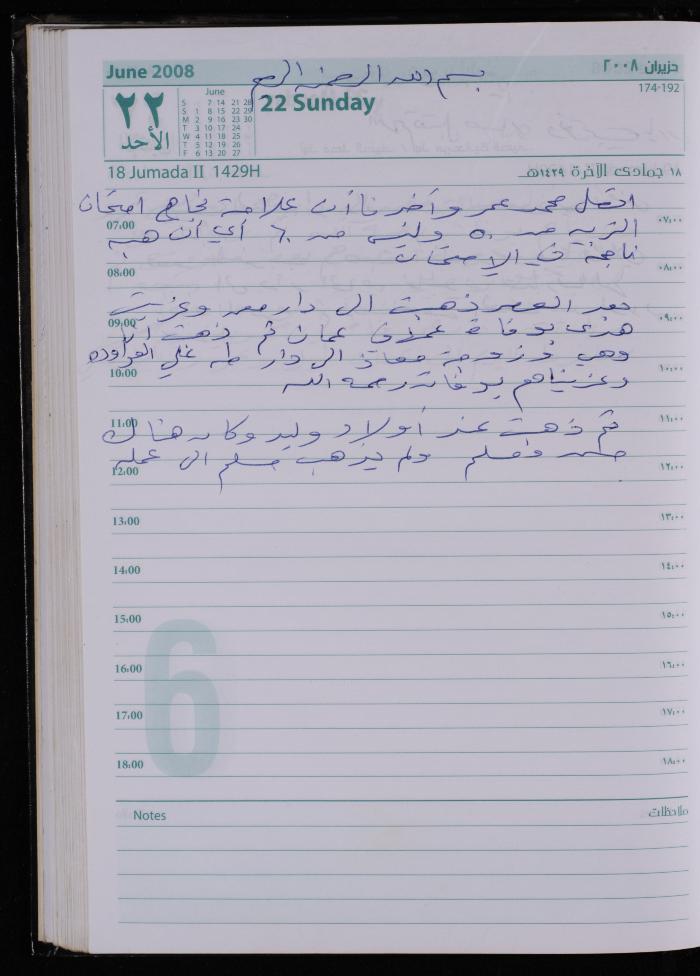 June 2008
حزيران ٢٠٠٨
بسم الله الرحمن الرحيم
174-192
22 Sunday
٢٢
الأحد
June
S 7 14 21 28
S 1 8 15 22 29
M 2 9 16 23 30
T 3 10 17 24
W 4 11 18 25
T 5 12 19 26
F 6 13 20 27
18 Jumada II 1429H
١٨ جمادى الآخرة ١٤٢٩هـ
اتصل محمد عمر وأخبرنا أن علامة نجاح امتحان
07:00 ٠٧:٠٠
التربية من ٥٠ وليس من ٦٠ أي أن هبه
ناجحة في الإمتحان
08:00 ٠٨:٠٠
بعد العصر ذهبت الى دار وعزيت
09:00 ٠٩:٠٠
هدى بوفاة عمان ثم ذهبت أنا
وهي وزوجة معاذ الى دار طه علي
10:00 ١٠:٠٠
وعزيناهم بوفاته رحمه الله
11:00 ١١:٠٠
ثم ذهبت عند أولاد وليد وكان هناك
ولم يذهب مسلم الى عمله
12:00 ١٢:٠٠
13:00 ١٣:٠٠
14:00 ١٤:٠٠
15:00 ١٥:٠٠
6
16:00 ١٦:٠٠
17:00 ١٧:٠٠
18:00 ١٨:٠٠
Notes
ملاحظات